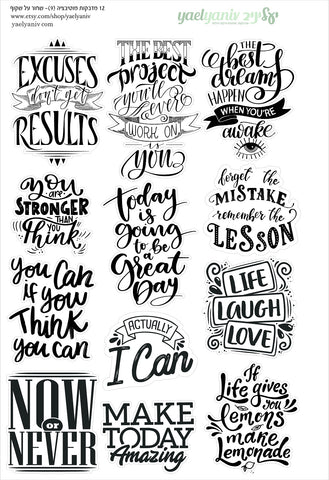 12 מדבקות מוטיבציה (1) - שחור על שקוף
www.etsy.com/shop/yaelyaniv
yaelyaniv.com
yaelyaniv יעל יניב
EXCUSES
don't get
RESULTS
THE BEST
project
you'll
ever
WORK ON
is
you
The
best
dreams
HAPPEN
WHEN YOU'RE
awake
you
are
STRONGER
THAN
you
Think
today
is
going
to be
a
Great
Day
forget the
MISTAKE
remember the
LESSON
You Can
if you
Think
you can
ACTUALLY
I Can
LIFE
LAUGH
LOVE
NOW
or
NEVER
MAKE
TODAY
Amazing
If
Life gives
you
Lemons
make
Lemonade